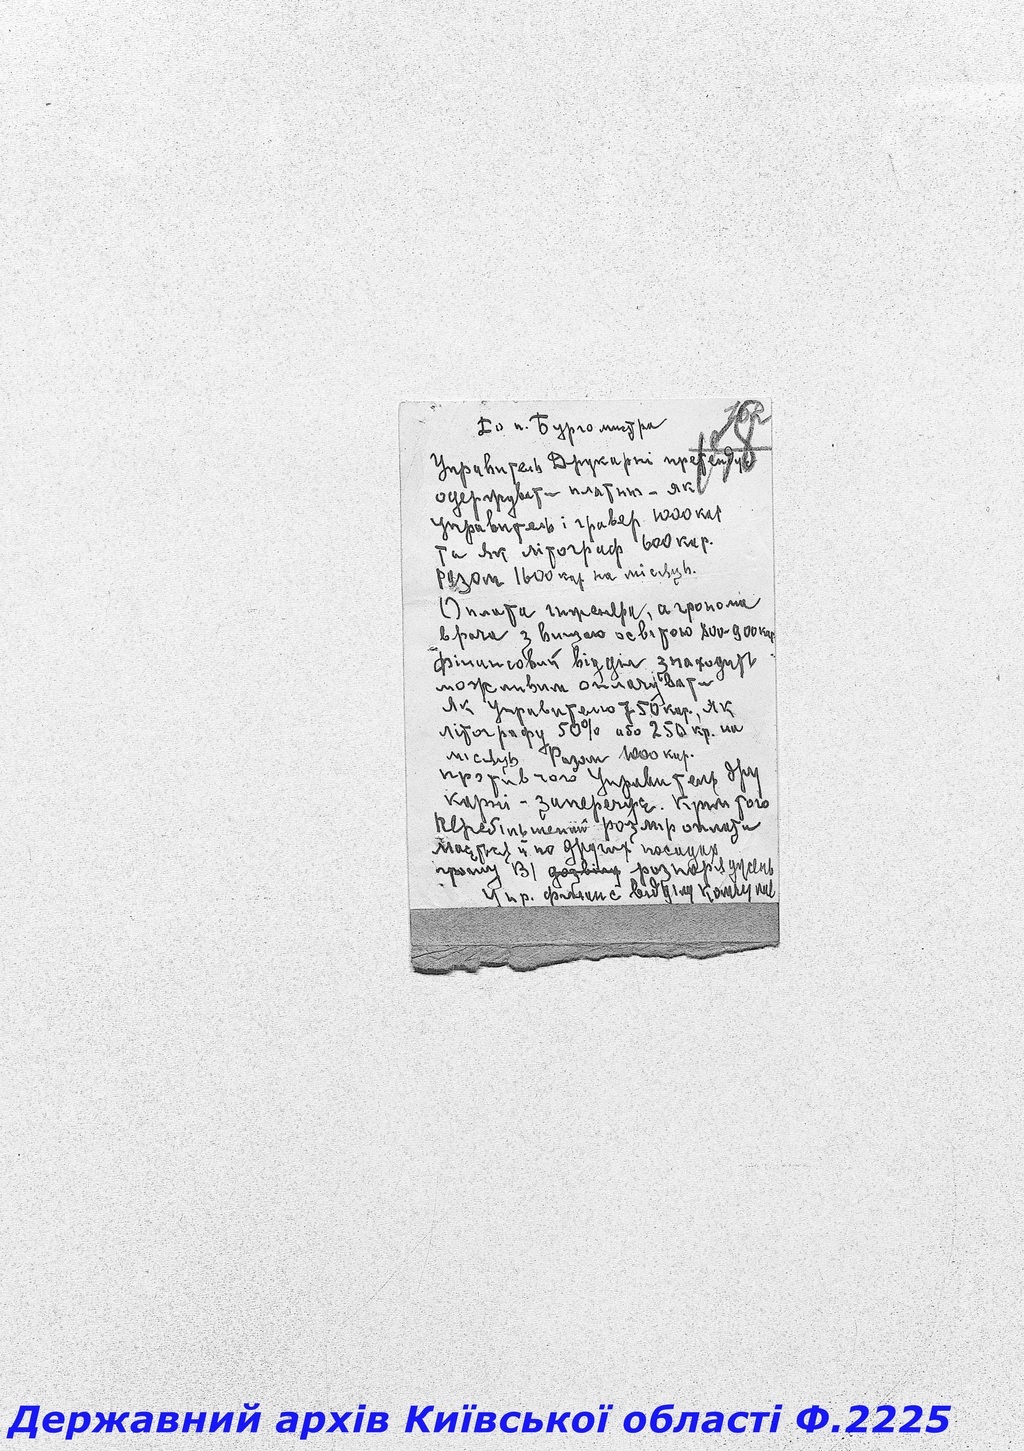 До п. Бургомистра
Управитель Друкарні претендує
одержувати платню - як
Управитель і гравер 1000 кар
та як літограф 600 кар.
Разом 1600 кар на місяць.
Оплата інженера, агронома
врача з вищою освітою 800-900 кар
Фінансовий відділ знаходить
можливим оплачувати
як Управителю 750 кар., як
літографу 50% або 250 кр. на
місяць Разом 1000 кар.
Протів чого Управитель Дру
карні - заперечує. Крім того
перебільшений розмір оплати
мається й по других посадах
прошу Ві розпоряджень
Упр. фінанс відділу
Державний архів Київської області Ф.2225